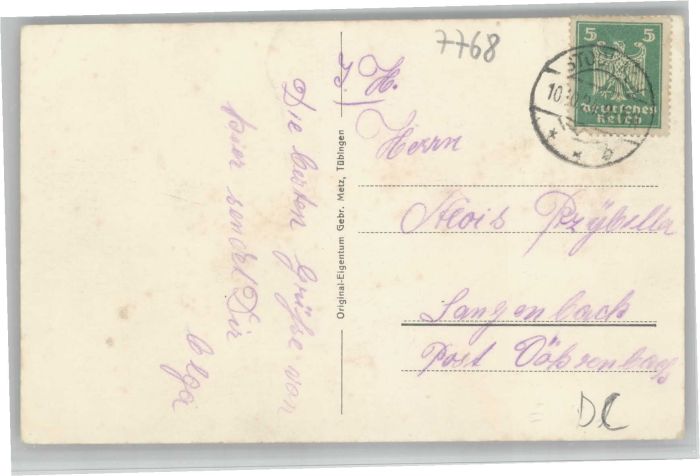 7768
Die besten Grüße von
hier sendet Dir
Olga
Original-Eigentum Gebr. Metz, Tübingen
H.
Herrn
Alois Przybilla
Langenbach
Post Vöhrenbach
5 5
Deutsches
Reich
10
b
DC